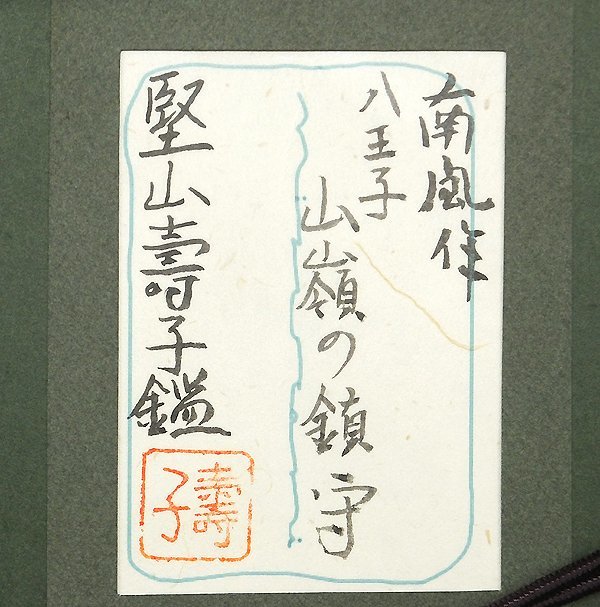 南風作
八王子
山嶺の鎮守
堅山壽子鑑
壽子